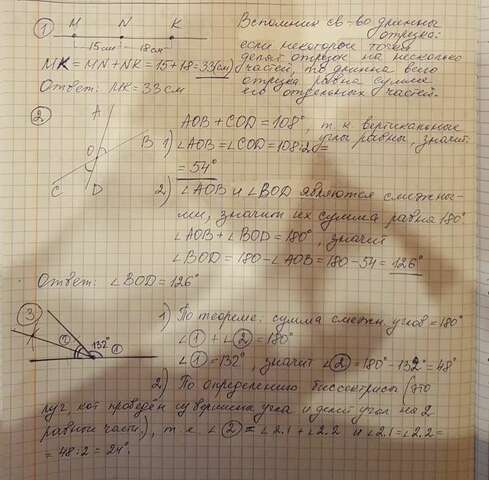 ① M N K
15см 18см
MK = MN + NK = 15 + 18 = 33(см)
Ответ: MK = 33 см
Вспомним св-во длинны
отрезка:
если некоторые точки
делят отрезок на несколько
частей, то длинна всего
отрезка равна сумме
его отдельных частей.
② A
B
O
C D
AOB + COD = 108°, т.к вертикальные
углы равны, значит
1) ∠AOB = ∠COD = 108:2 =
= 54°
2) ∠AOB и ∠BOD являются смежны-
ми, значит их сумма равна 180°
∠AOB + ∠BOD = 180°, значит
∠BOD = 180 - ∠AOB = 180 - 54 = 126°
Ответ: ∠BOD = 126°
③ 2 132° 1
1) По теореме: сумма смежн. углов = 180°
∠① + ∠② = 180°
∠① = 132°, значит ∠② = 180° - 132° = 48°
2) По определению биссектрисы (это
луч, кот проведен из вершины угла и делит угол на 2
равные части), т.е. ∠② = ∠2.1 + ∠2.2 и ∠2.1 = ∠2.2 =
= 48:2 = 24°.